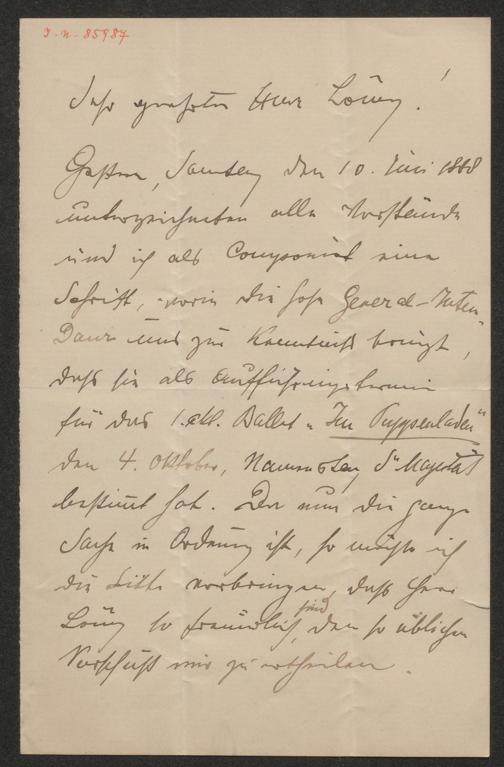 I.N. 85987
Sehr geehrter Herr Löwy!
Gestern, Sonntag den 10. Juni 1888
unterzeichneten alle Vorstände
und ich als Componist eine
Schrift, worin die hohe General-Inten-
Danz uns zur Kenntniß bringt,
daß sie als Aufführungstermin
für das 1.akt. Ballet "Im Puppenladen"
den 4. Oktober, Namenstag Sr Majestät
bestimt hat. Da nun die ganze
Sache in Ordnung ist, so möchte ich
die Bitte vorbringen, daß Herr
Löwy so freundlich sind, den so üblichen
Vorschuß mir zu ertheilen.